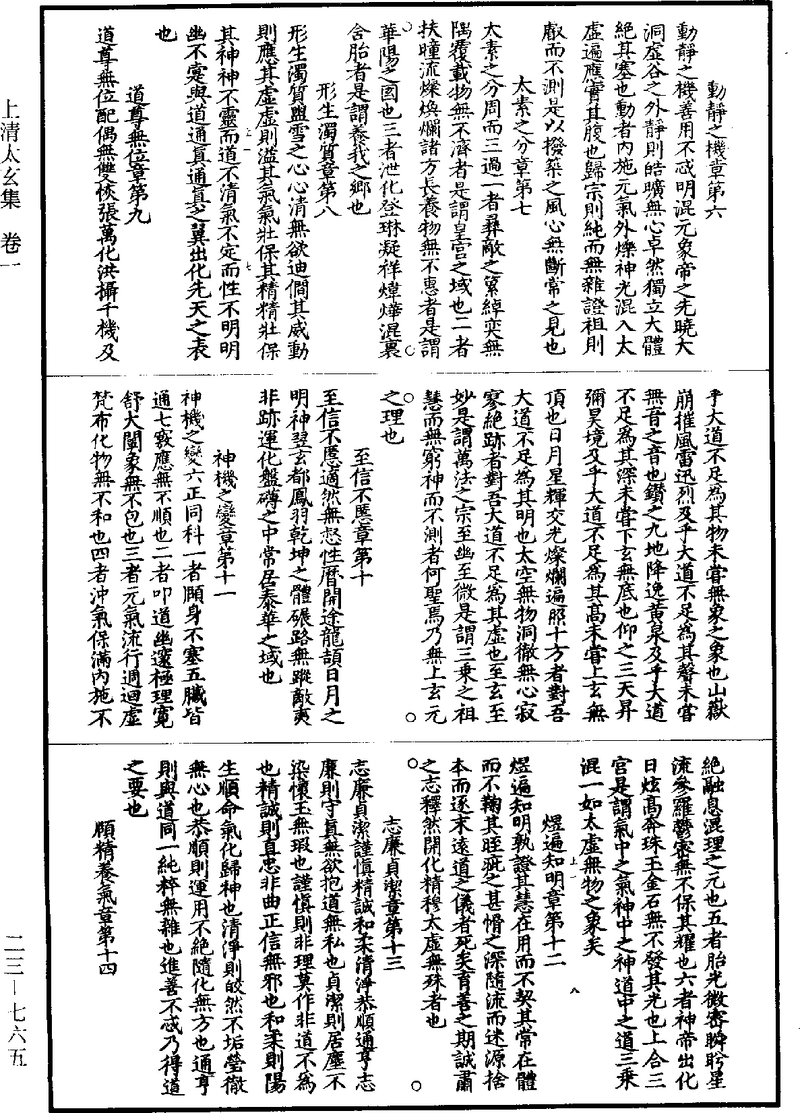 上清太玄集　卷一
二三—七六五
動靜之機章第六
動靜之機善用不惑明混元象帝之先曉大
洞虛谷之外靜則皓曠無心卓然獨立大體
絕其塞也動者內施元氣外爍神光混入太
虛遍應實其腹也歸宗則純而無雜證祖則
叡而不測是以撥蘂之風心無斷常之見也
太素之分章第七
太素之分周而三過一者彞敵之纂綽奕無
隅覆載物無不濟者是謂皇宮之域也二者
扶瞳流燦煥爛諸方長養物無不惠者是謂
華陽之國也三者泄化登琳凝祥煒燁混裹
含胎者是謂養我之鄉也
形生濁質章第八
形生濁質盟雪之心心清無欲迪僩其威動
則應其虛虛則溢其氣氣壯保其精精壯保
其神神不靈而道不清氣不定而性不明明
幽不寔與道通真通真之翼出化先天之表
也
道尊無位章第九
道尊無位配偶無雙恢張萬化洪攝千機及
乎大道不足為其物未嘗無象之象也山嶽
崩摧風雷迅烈及乎大道不足為其聲未嘗
無音之音也鑽之九地降逸黃泉及乎大道
不足為其深未嘗下玄無底也仰之三天昇
彌昊境及乎大道不足為其高未嘗上玄無
頂也日月星輝交光燦爛遍照十方者對吾
大道不足為其明也太空無物洞徹無心寂
寥絕跡者對吾大道不足為其虛也至玄至
妙是謂萬法之宗至幽至微是謂三乘之祖
慧而無窮神而不測者何聖焉乃無上玄元
之理也
至信不慝章第十
至信不慝適然無愸性曆開途龍頡日月之
明神翌玄都鳳羽乾坤之體碾路無蹤敵夷
非跡運化盤礡之中常居泰華之域也
神機之變章第十一
神機之變六正同科一者頤身不塞五臟皆
通七竅應無不順也二者叩道幽邃極理寬
舒大闡象無不包也三者元氣流行週迴虛
梵布化物無不和也四者沖氣保滿內施不
絕融息混理之元也五者胎光微密瞬盻星
流參羅鬱密無不保其耀也六者神帝出化
日炫高奔珠玉金石無不發其光也上合三
宮是謂氣中之氣神中之神道中之道三乘
混一如太虛無物之象矣
煜遍知明章第十二
煜遍知明孰證其慧在用而不契其常在體
而不鞠其眰疵之甚愲之深隨流而迷源捨
本而逐末遠道之儀者死矣育善之期誠肅
之志釋然開化精穆太虛無殊者也
志廉貞潔章第十三
志廉貞潔謹慎精誠和柔清淨恭順通亨志
廉則守真無欲抱道無私也貞潔則居塵不
染懷玉無瑕也謹慎則非理莫作非道不為
也精誠則直忠非曲正信無邪也和柔則陽
生順命氣化歸神也清淨則皎然不垢瑩徹
無心也恭順則運用不絕隨化無方也通亨
則與道同一純粹無雜也進善不惑乃得道
之要也
頤精養氣章第十四